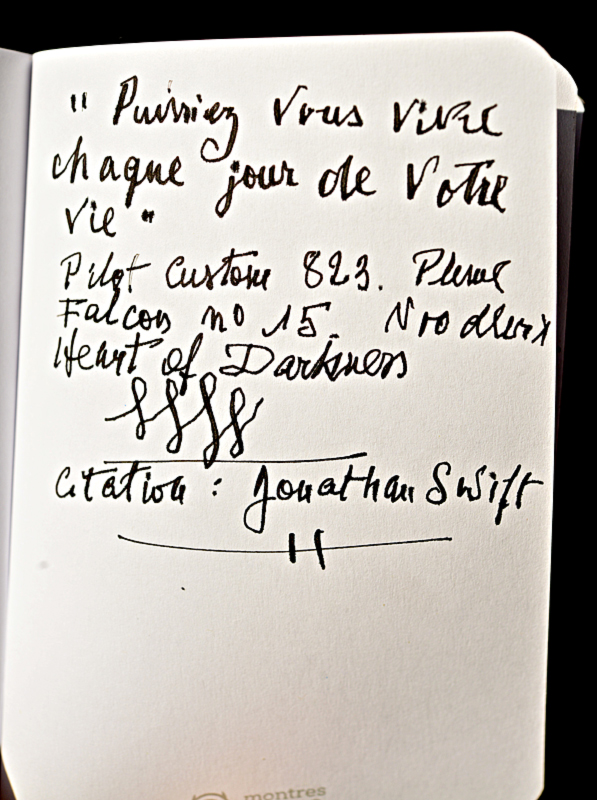 " Puissiez Vous vivre
chaque jour de Votre
vie "
Pilot Custom 823. Plume
Falcon no 15. Noodler's
Heart of Darkness
Citation : Jonathan Swift
montres